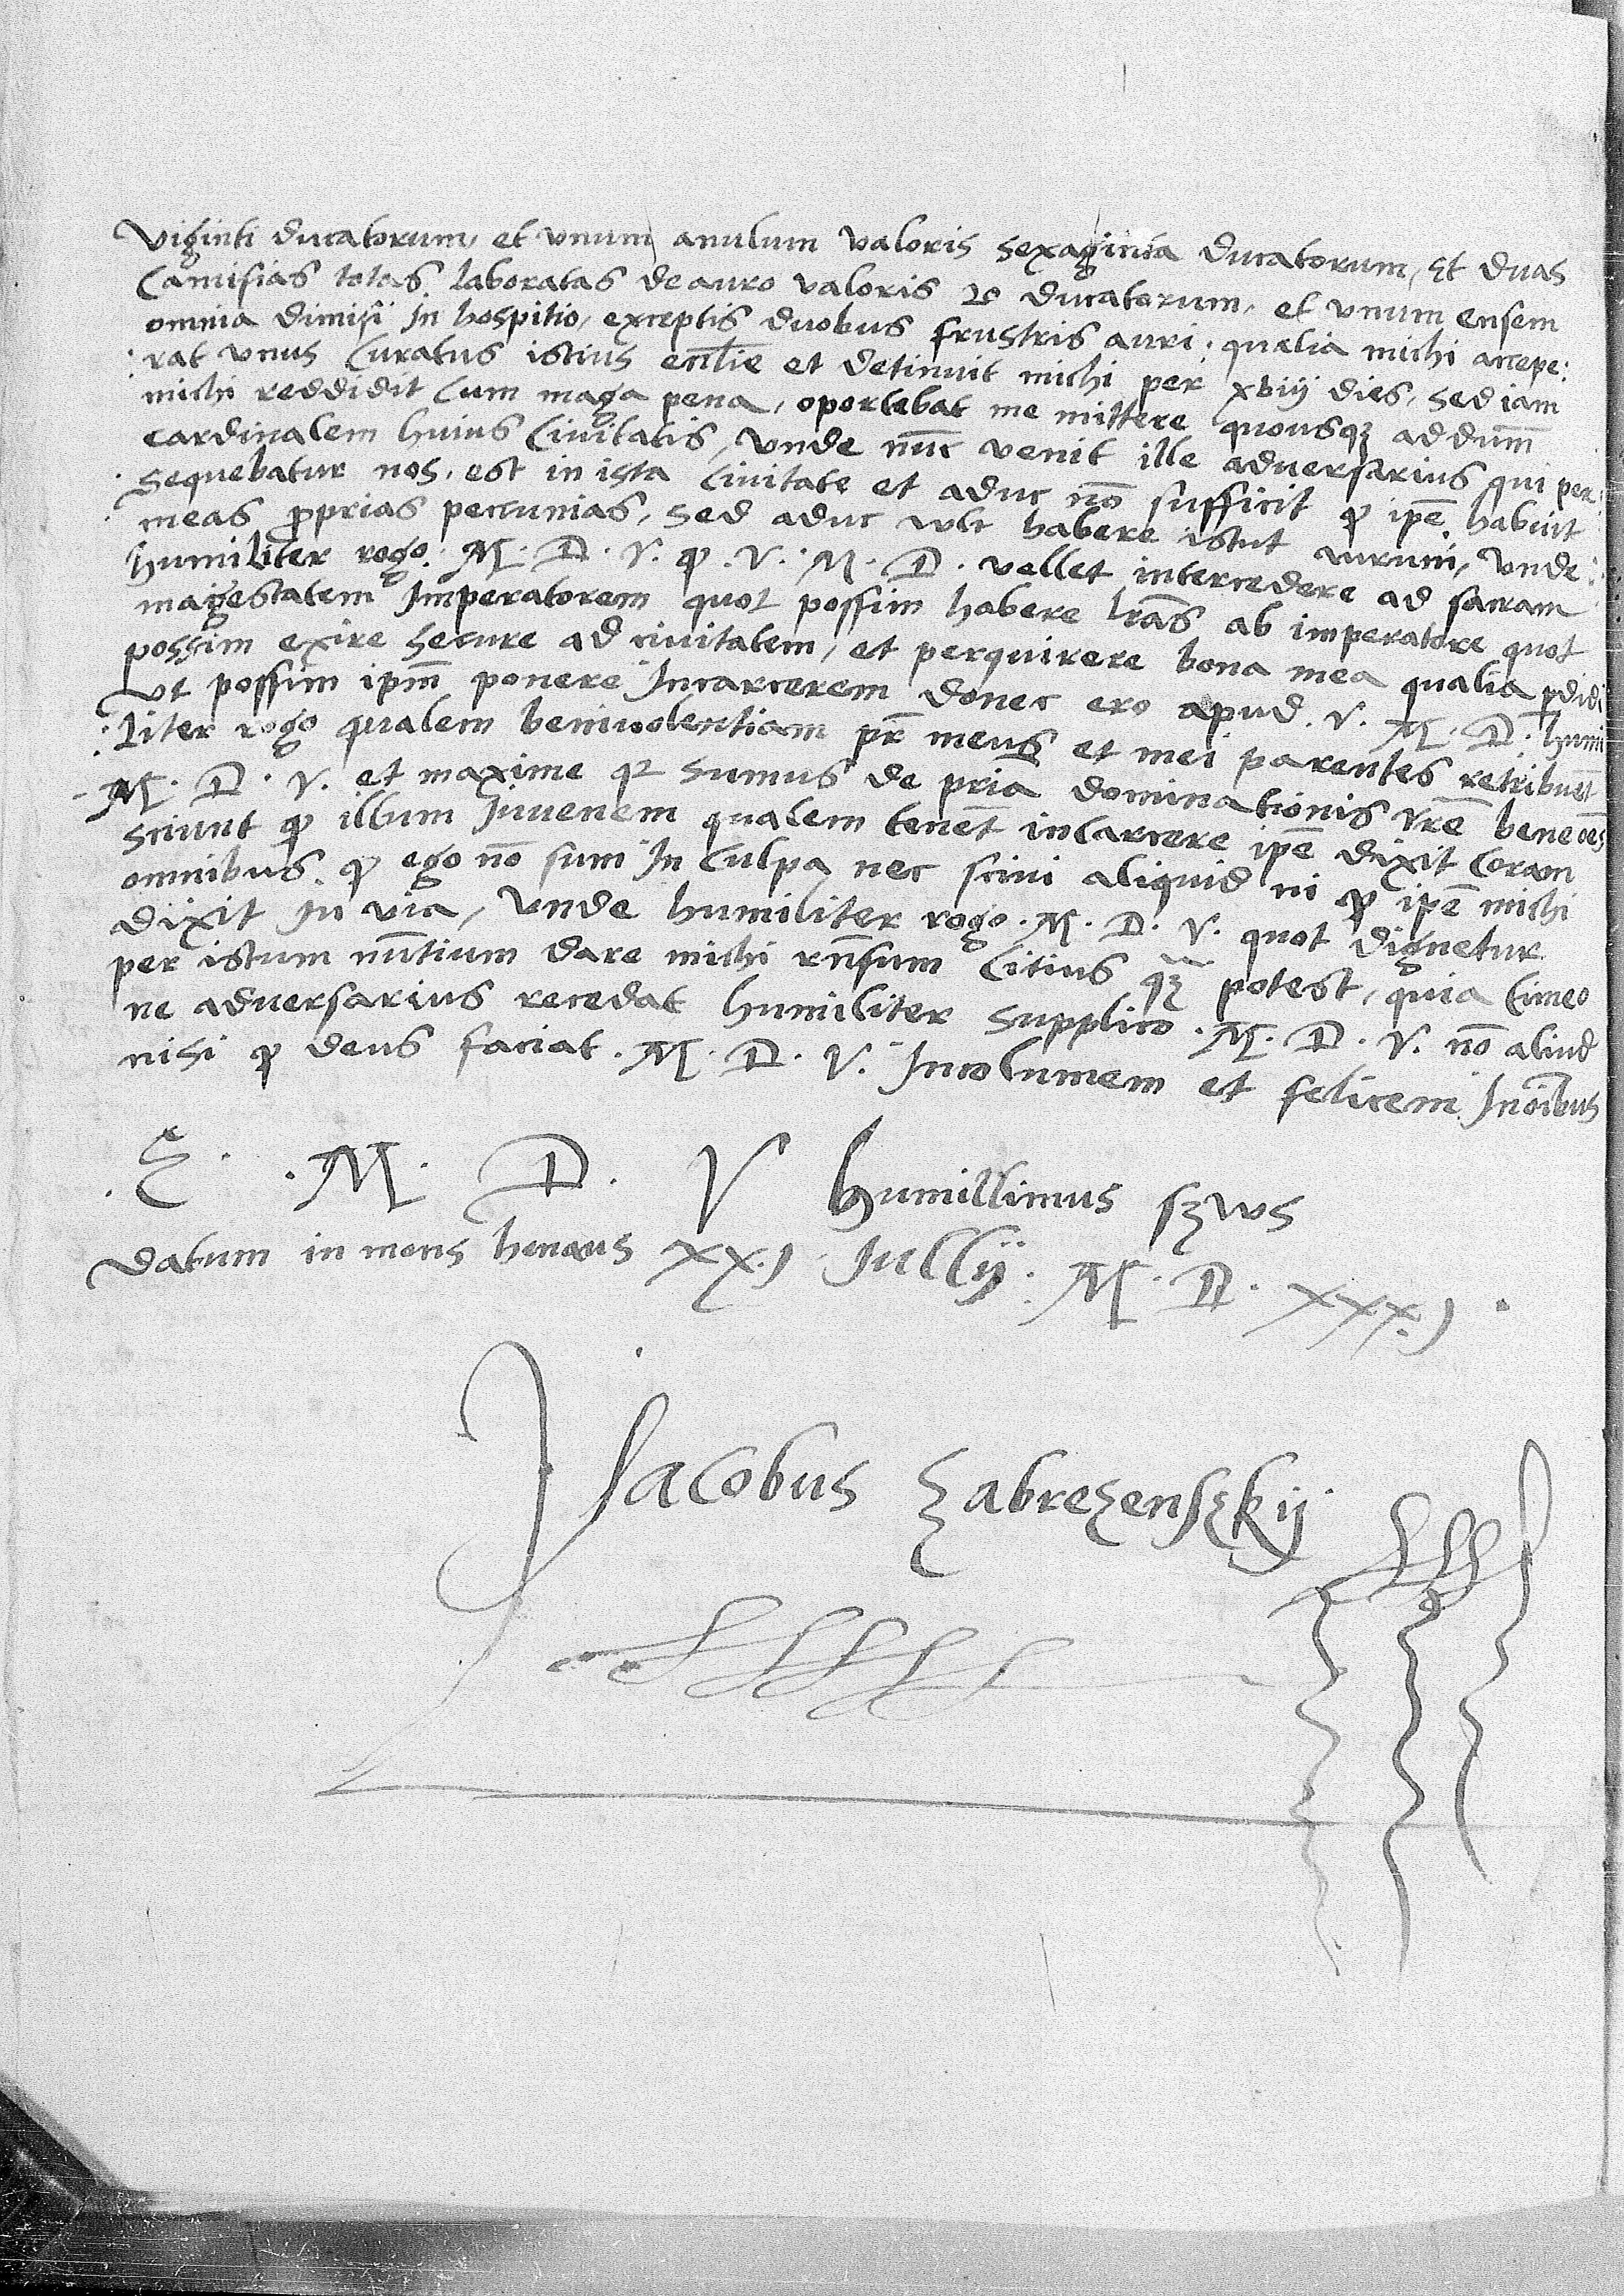 Viginti ducatorum, et vnum anulum valoris sexaginta ducatorum, Et duas
Camisias totas laboratas de auro valoris 20 ducatorum, et vnum ensem
omnia dimisi In hospitio, exceptis duobus frustris auri. qualia michi accepe:
:rat vnus Curatus istius eccl̄ie et detinuit michi per xviij dies, sed iam
michi reddidit Cum maga pena, oportebat me mittere quousqꝫ ad dūm
cardinalem huius Ciuitatis, Vnde nūc venit ille aduersarius qui per:
sequebatur nos. est in ista Ciuitate et aduc nō sufficit ꝙ ip̄e habuit
meas ꝓprias peccunias, sed aduc vult habere istut aurum, Vnde
humiliter rogo. M. D. V. ꝙ. V. M. D. vellet intercedere ad sacram
magestatem Imperatorem quot possim habere l̄ras ab imperatore quot
possim exire secure ad ciuitatem, et perquirere bona mea qualia ꝑdidi
Vt possim ip̄m ponere Incarcerem donec ero apud. V. M. D. humi
:liter rogo qualem beniuolentiam pr̄ meus et mei parentes retribuēt
M. D. V. et maxime qꝛ sumus de pria dominationis Vr̄e bene oēs
sciunt ꝙ illum Juuenem qualem tenēt incarcere ip̄e dixit Coram
omnibus. ꝙ ego nō sum In Culpa nec sciui aliquid ni ꝙ ip̄e michi
dixit In via, Vnde humiliter rogo. M. D. V. quot dignetur
per istum nūtium dare michi rn̄sum Citius qꝫ potest, quia timeo
ne aduersarius recedat humiliter supplico. M. D. V. nō aliud
nisi ꝙ deus faciat. M. D. V. Incolumem et felicem Inoībus
E. M. D. V humillimus sꝫuus
Datum in mons henaus XX.J Jullij. M. D. XXX.J.
Jacobus Zabrezenszkij